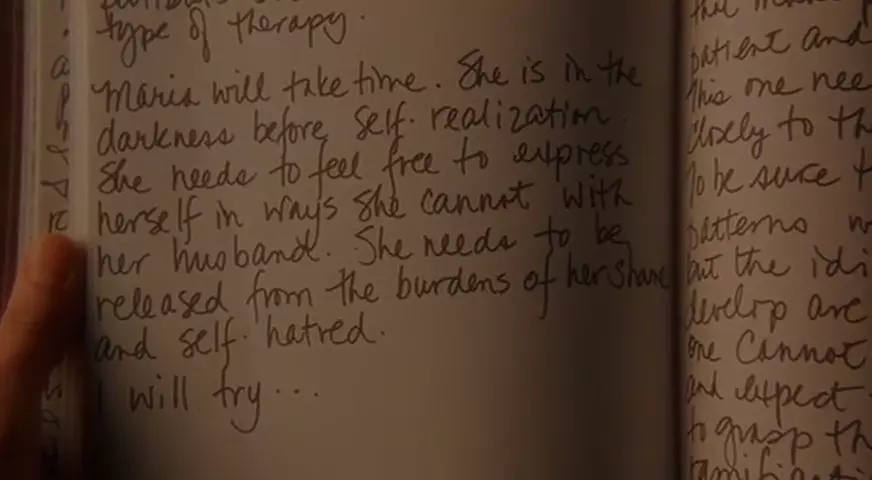 type of therapy.
Maria will take time. She is in the
darkness before self-realization.
She needs to feel free to express
herself in ways she cannot with
her husband. She needs to be
released from the burdens of her shame
and self-hatred.
I will try...
patient and
This one nee
closely to th
to be sure t
patterns
but the idi
develop are
one cannot
and expect
to grasp th